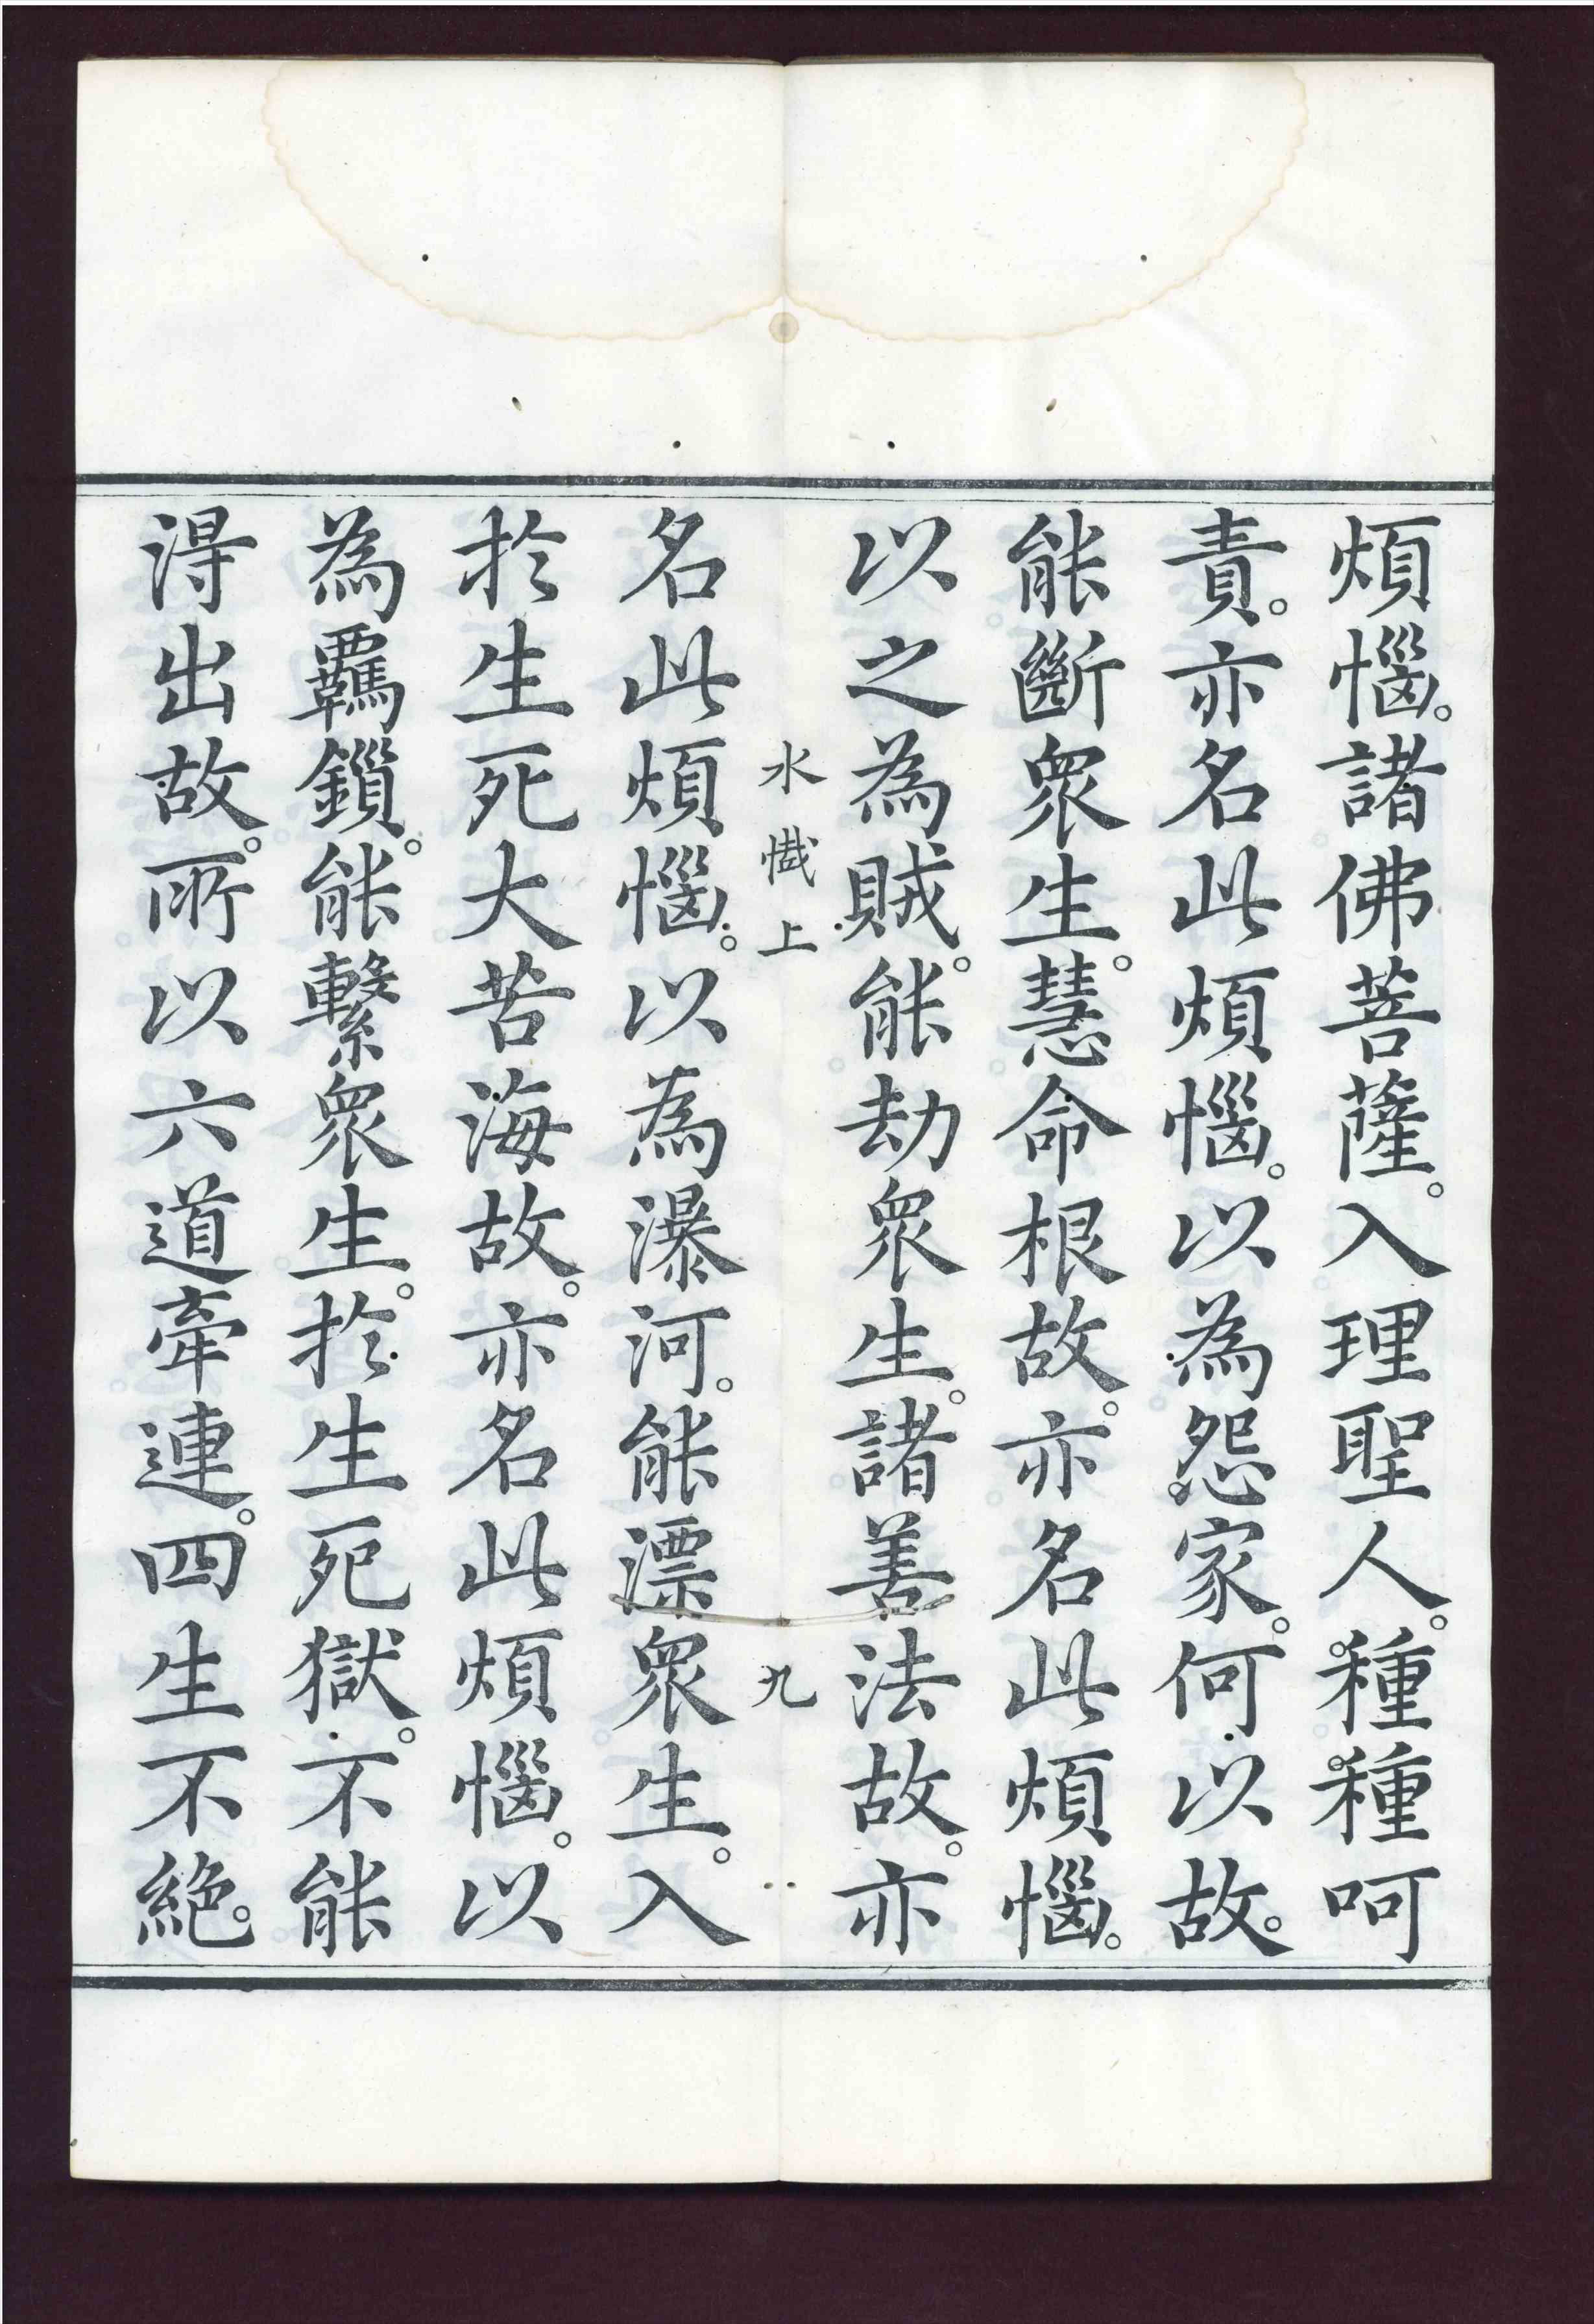 煩惱。諸佛菩薩。入理聖人。種種呵
責。亦名此煩惱。以為怨家。何以故。
能斷眾生。慧命根故。亦名此煩惱。
以之為賊。能劫眾生。諸善法故。亦
水懺上 九
名此煩惱。以為瀑河。能漂眾生。入
於生死大苦海故。亦名此煩惱。以
為羈鎖。能繫眾生。於生死獄。不能
得出故。所以六道牽連。四生不絕。